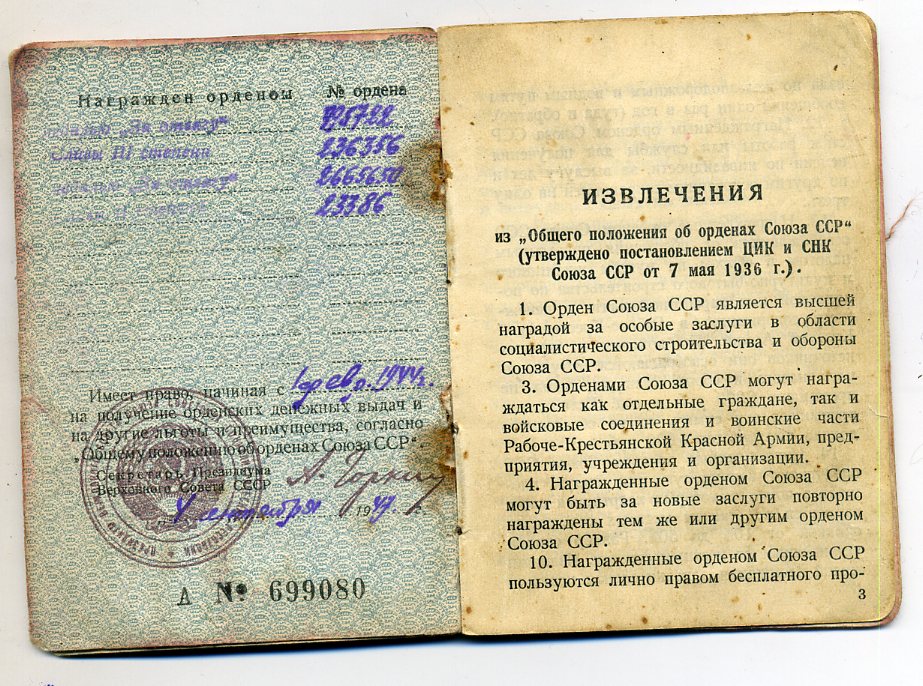 Награжден орденом № ордена
медалью „За отвагу“
Славы III степени 236356
медалью „За отвагу“ 2665650
23386
Имеет право, начиная с 1 фев. 1944г.
на получение орденских денежных выдач и
на другие льготы и преимущества, согласно
„Общему положению об орденах Союза ССР“.
Секретарь Президиума
Верховного Совета СССР А. Горкин
4 сентября 1947 г.
А № 699080
ИЗВЛЕЧЕНИЯ
из „Общего положения об орденах Союза ССР“
(утверждено постановлением ЦИК и СНК
Союза ССР от 7 мая 1936 г.).
1. Орден Союза ССР является высшей
наградой за особые заслуги в области
социалистического строительства и обороны
Союза ССР.
3. Орденами Союза ССР могут награ-
ждаться как отдельные граждане, так и
войсковые соединения и воинские части
Рабоче-Крестьянской Красной Армии, пред-
приятия, учреждения и организации.
4. Награжденные орденом Союза ССР
могут быть за новые заслуги повторно
награждены тем же или другим орденом
Союза ССР.
10. Награжденные орденом Союза ССР
пользуются лично правом бесплатного про-
3